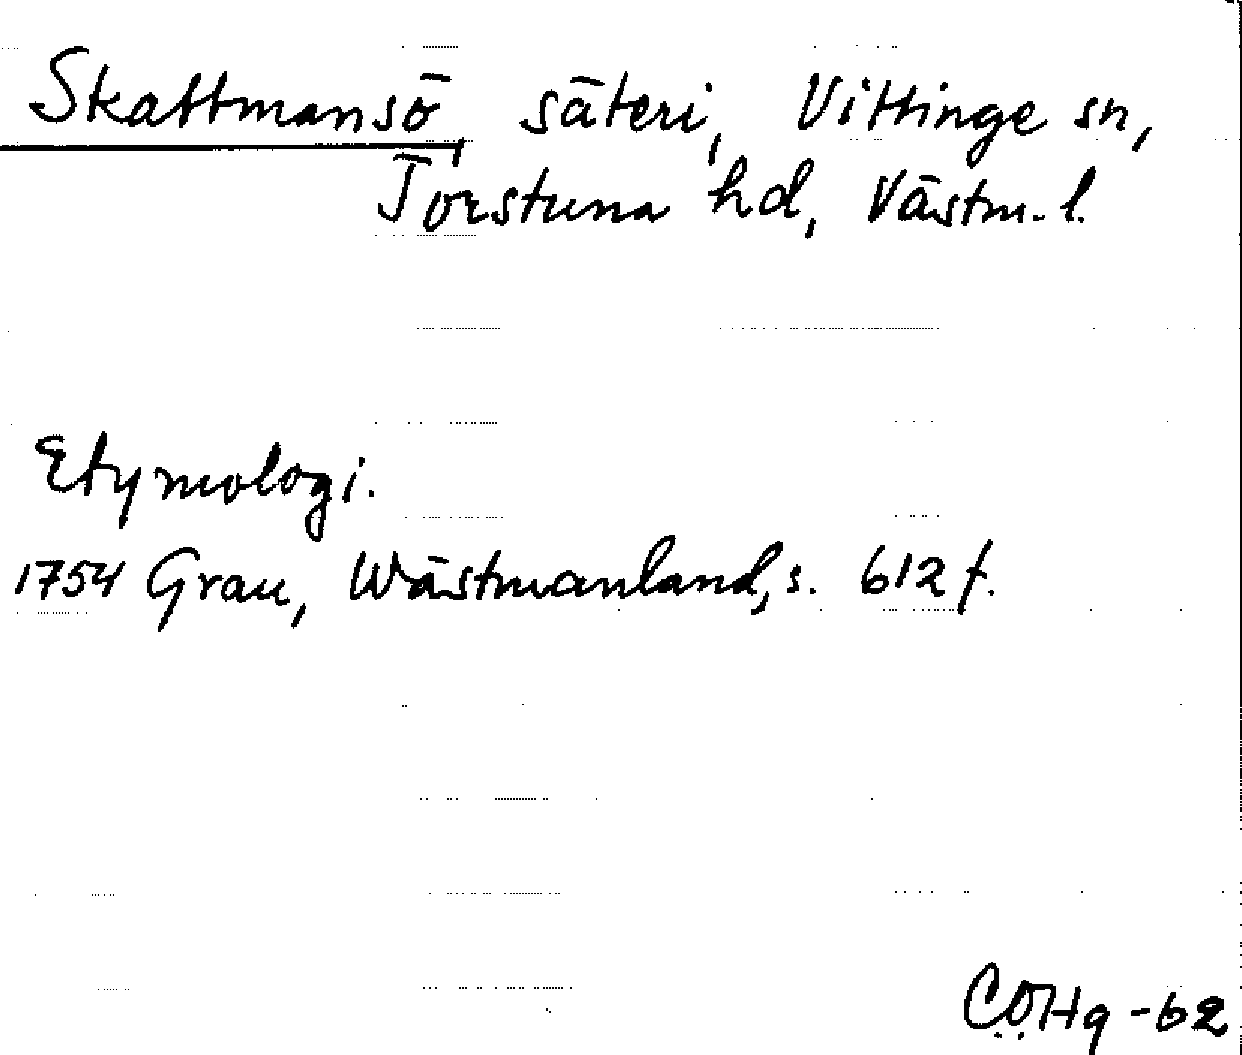 Skattmansö, säteri, Vittinge sn,
Torstuna hd, Västm. l.
Etymologi.
1754 Grau, Wästmanland, s. 612 f.
COHg -62